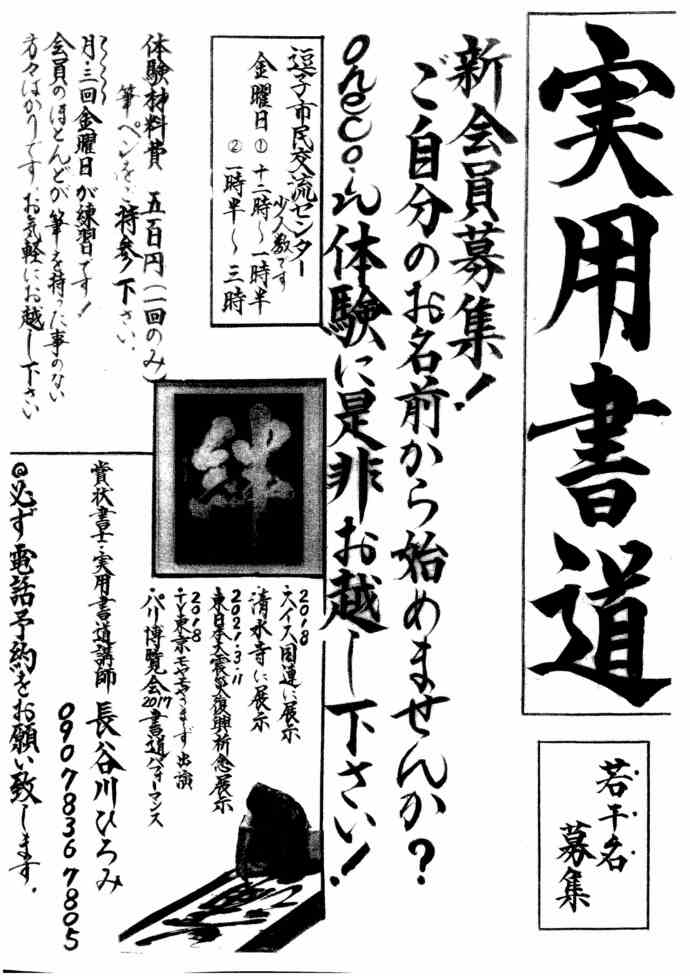 実用書道
若干名
募集
新会員募集!
ご自分のお名前から始めませんか?
onecoin体験に是非お越し下さい!
逗子市民交流センター
少人数です
金曜日①十二時〜一時半
②一時半〜三時
体験材料費 五百円(一回のみ)
筆ペンをご持参下さい.
月・三回金曜日が練習です!
会員のほとんどが筆を持った事のない
方々ばかりです。お気軽にお越し下さい
絆
2018
・スイス国道に展示
・清水寺に展示
2021.3.11
東日本大震災復興祈念展示
2018
・TV東京モヤモヤさまぁず出演
・パリ博覧会2017書道パフォーマンス
賞状書士・実用書道講師 長谷川ひろみ
09078367805
◎必ず電話予約をお願い致します.